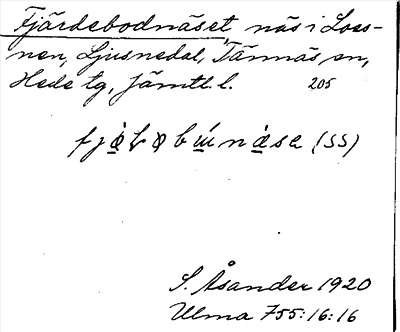 Fjärdebodnäset näs i Loss-
nen, Ljusnedal, Tännäs sn,
Hede tg, Jämtl. l. 205
(SS)
S. Åsander 1920
Ulma 755:16:16